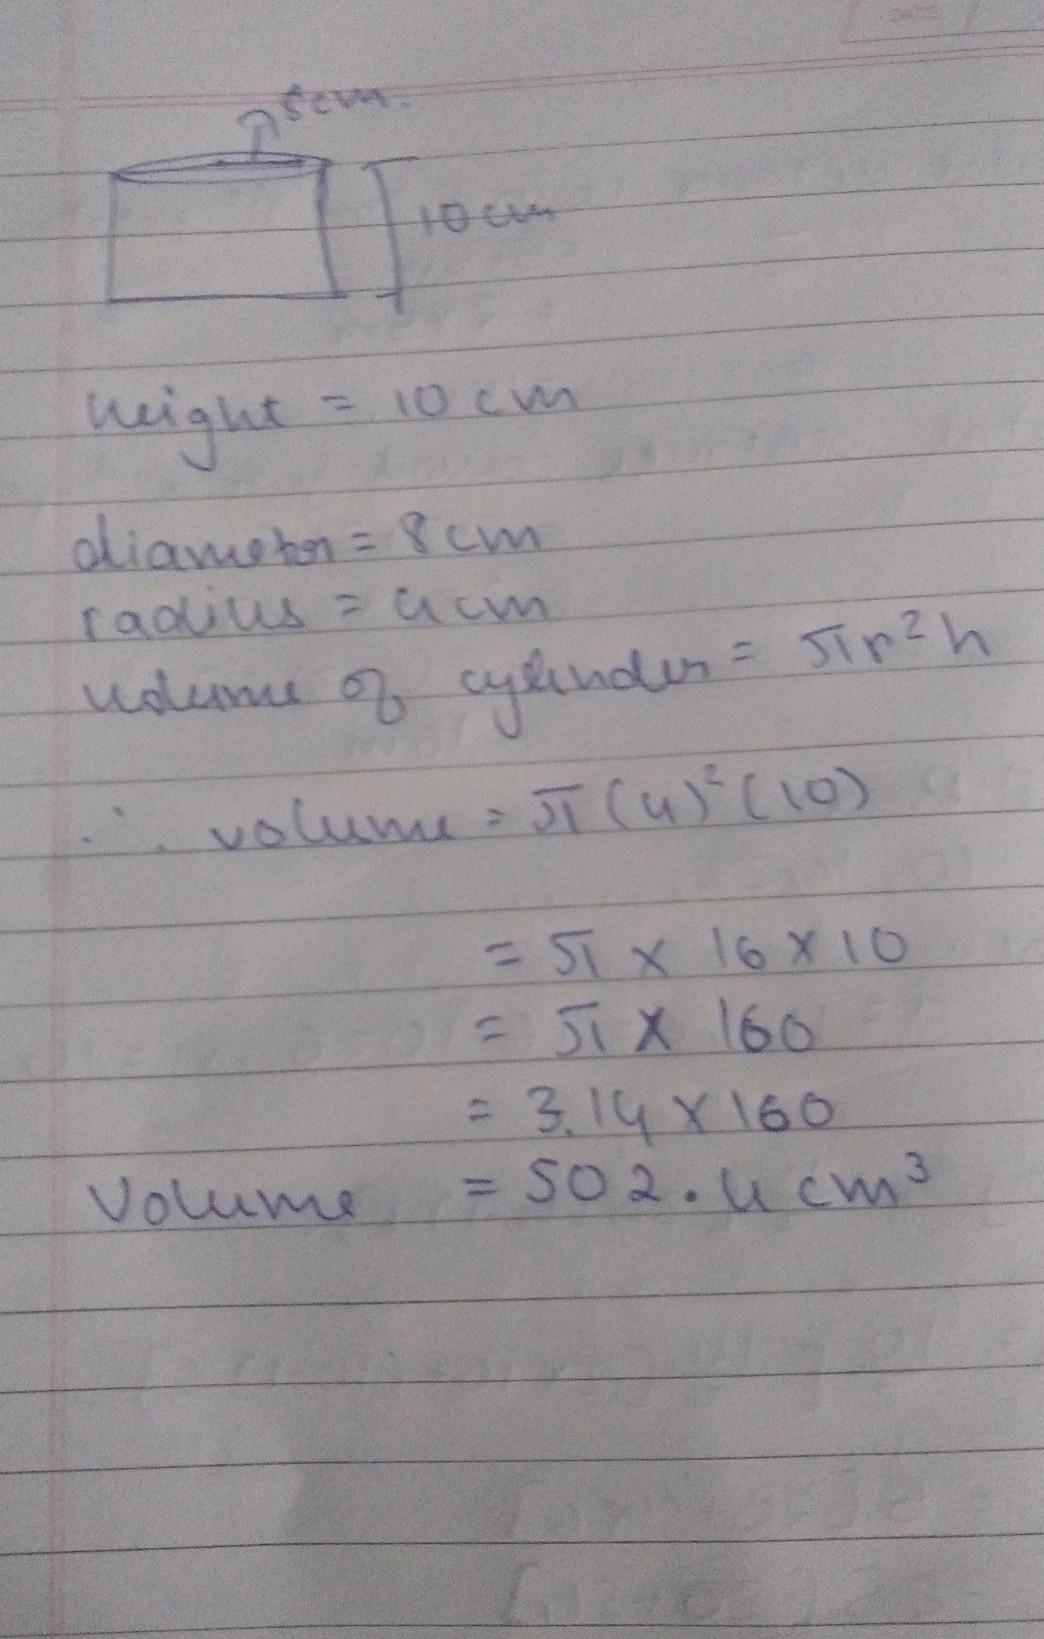 8cm.
10cm
height = 10 cm
diameter = 8 cm
radius = 4 cm
volume of cylinder = πr²h
∴ volume = π(4)²(10)
= π × 16 × 10
= π × 160
= 3.14 × 160
Volume = 502.4 cm³